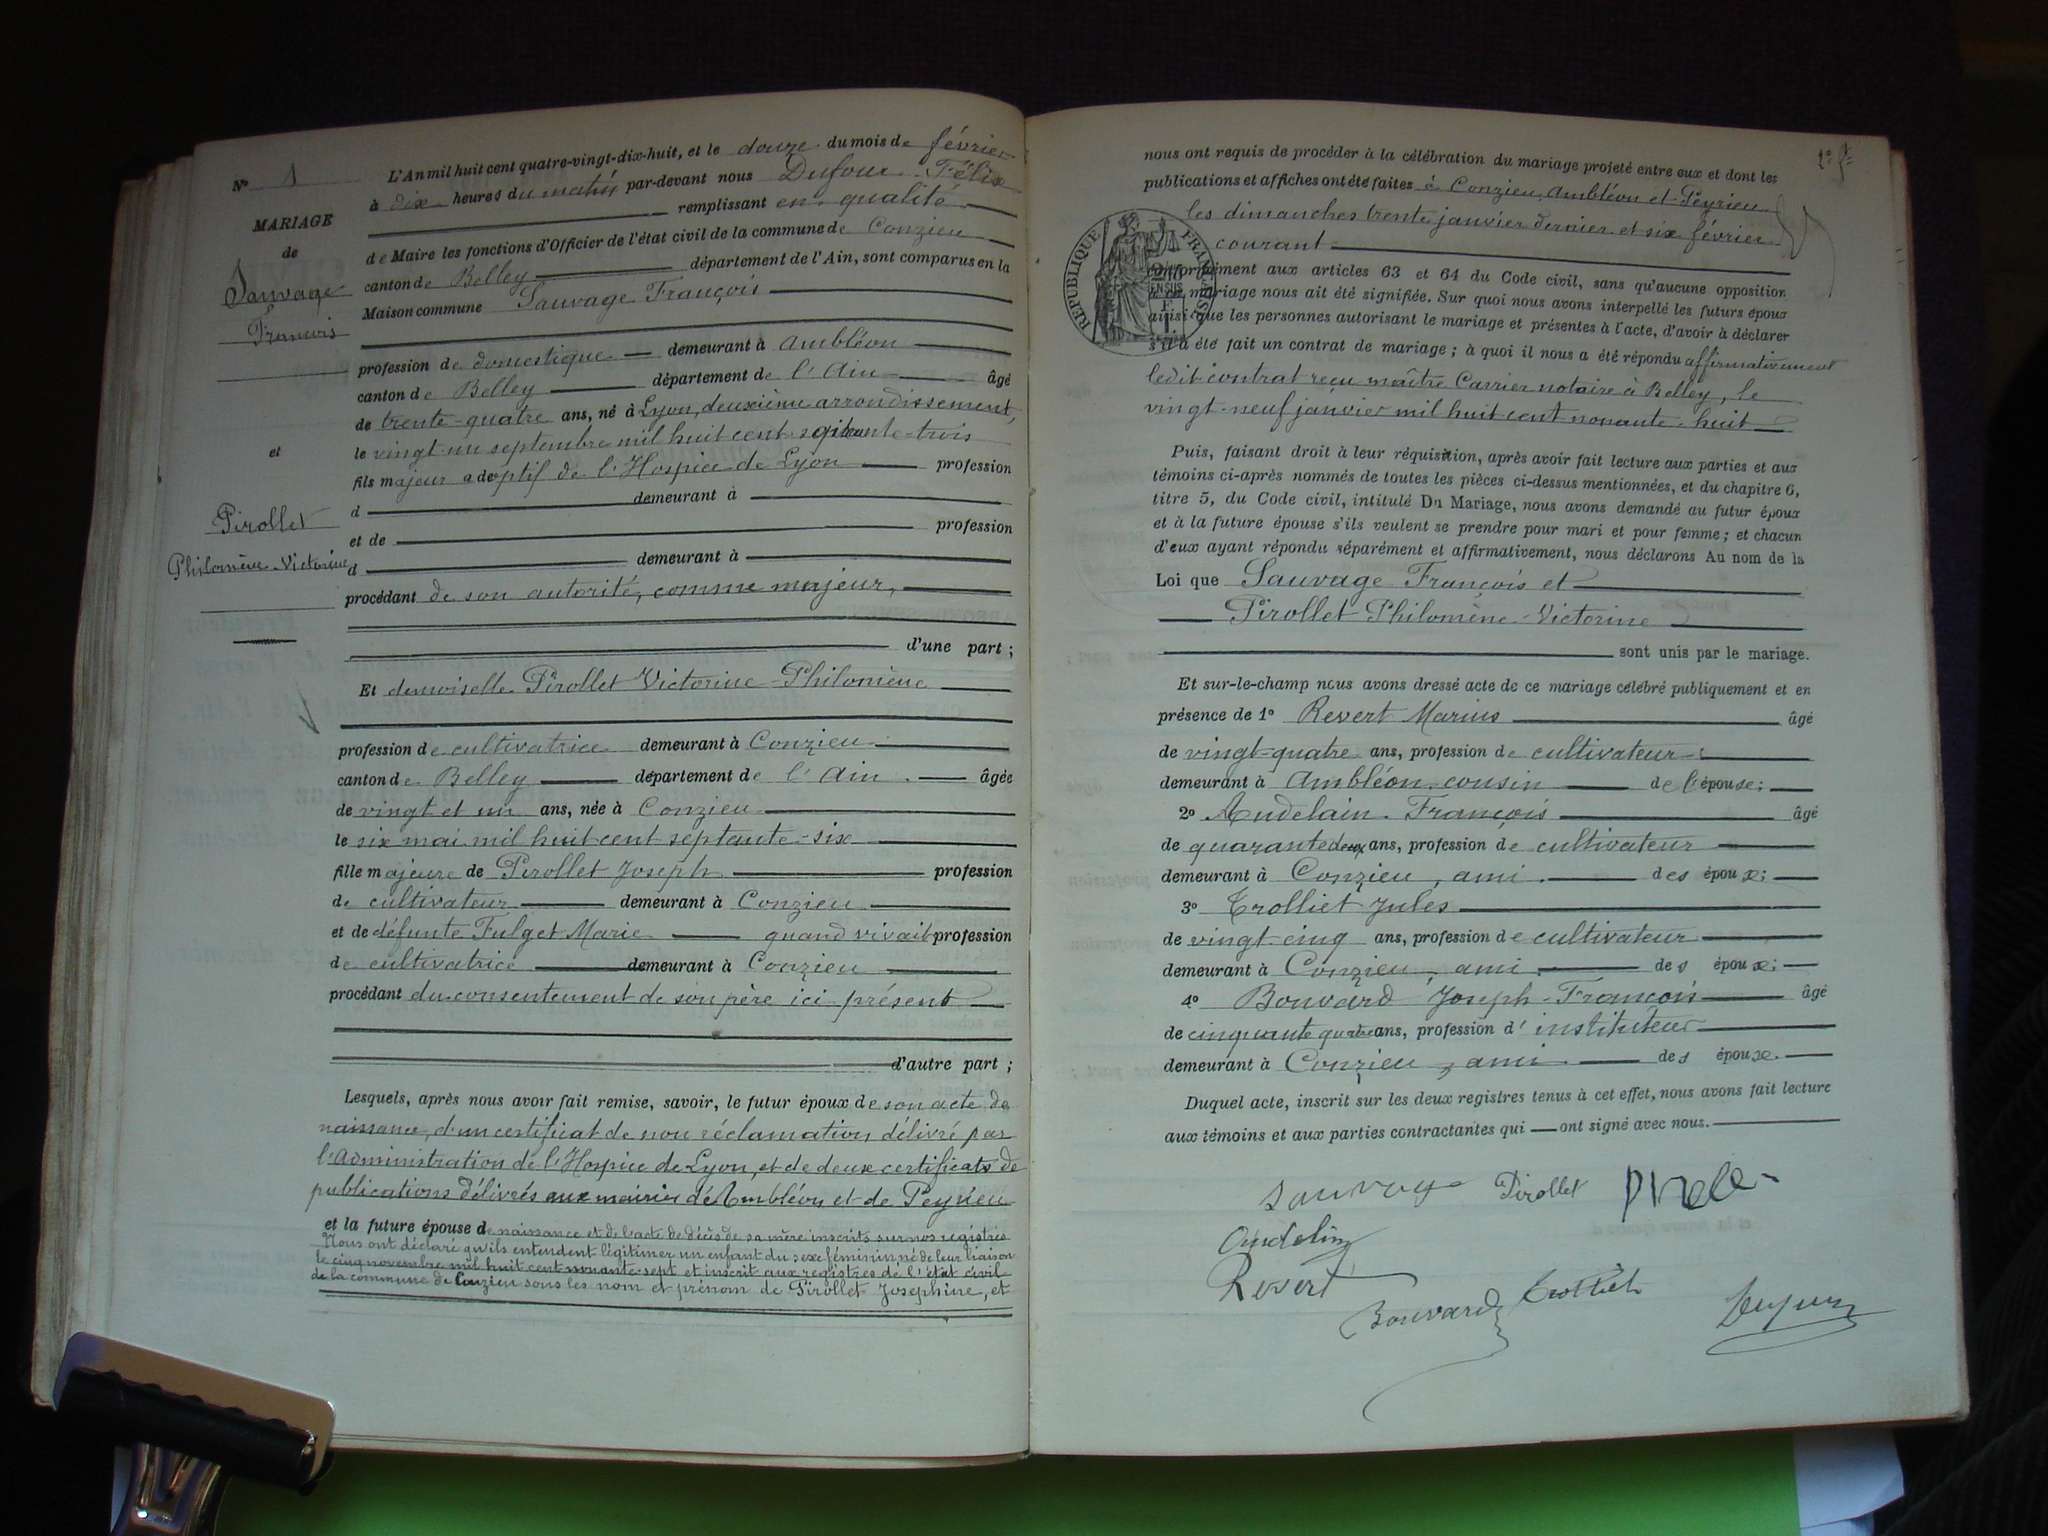 N° 1
MARIAGE
de
Sauvage
François
et
Pirollet
Philomène Victorine
L'An mil huit cent quatre-vingt-dix-huit, et le douze du mois de février
à dix heures du matin par-devant nous Dufour Félix
remplissant en qualité
de Maire les fonctions d'Officier de l'état civil de la commune de Conzieu
canton de Belley département de l'Ain, sont comparus en la
Maison commune Sauvage François
profession de domestique demeurant à Ambléon
canton de Belley département de l'Ain âgé
de trente-quatre ans, né à Lyon, deuxième arrondissement,
le vingt un septembre mil huit cent soixante-trois
fils majeur adoptif de l'Hospice de Lyon profession
d demeurant à
et de profession
d demeurant à
procédant de son autorité, comme majeur,
d'une part ;
Et demoiselle Pirollet Victorine-Philomène
profession de cultivatrice demeurant à Conzieu
canton de Belley département de l'Ain. âgée
de vingt et un ans, née à Conzieu
le six mai mil huit cent septante-six
fille majeure de Pirollet Joseph profession
de cultivateur demeurant à Conzieu
et de défunte Fulget Marie quand vivait profession
de cultivatrice demeurant à Conzieu
procédant du consentement de son père ici présent
d'autre part ;
Lesquels, après nous avoir fait remise, savoir, le futur époux de son acte de
naissance, d'un certificat de non réclamation délivré par
l'Administration de l'Hospice de Lyon, et de deux certificats de
publications délivrés aux mairies d'Ambléon et de Peyrieu
et la future épouse de naissance et de l'acte de décès de sa mère inscrits sur nos registres
Nous ont déclaré qu'ils entendent légitimer un enfant du sexe féminin né de leur liaison
le cinq novembre mil huit cent nonante-sept et inscrit aux registres de l'état civil
de la commune de Conzieu sous les nom et prénom de Pirollet Josephine, et
nous ont requis de procéder à la célébration du mariage projeté entre eux et dont les
publications et affiches ont été faites à Conzieu, Ambléon et Peyrieu
les dimanches trente janvier dernier et six février
courant
RÉPUBLIQUE FRANÇAISE
conformément aux articles 63 et 64 du Code civil, sans qu'aucune opposition
à ce mariage nous ait été signifiée. Sur quoi nous avons interpellé les futurs époux
ainsi que les personnes autorisant le mariage et présentes à l'acte, d'avoir à déclarer
s'il a été fait un contrat de mariage ; à quoi il nous a été répondu affirmativement
ledit contrat reçu maître Carrier notaire à Belley, le
vingt-neuf janvier mil huit cent nonante-huit
Puis, faisant droit à leur réquisition, après avoir fait lecture aux parties et aux
témoins ci-après nommés de toutes les pièces ci-dessus mentionnées, et du chapitre 6,
titre 5, du Code civil, intitulé Du Mariage, nous avons demandé au futur époux
et à la future épouse s'ils veulent se prendre pour mari et pour femme ; et chacun
d'eux ayant répondu séparément et affirmativement, nous déclarons Au nom de la
Loi que Sauvage François et
Pirollet Philomène-Victorine
sont unis par le mariage.
Et sur-le-champ nous avons dressé acte de ce mariage célébré publiquement et en
présence de 1° Revert Marius âgé
de vingt-quatre ans, profession de cultivateur
demeurant à Ambléon, cousin de l'épouse ;
2° Audelain François âgé
de quarante deux ans, profession de cultivateur
demeurant à Conzieu, ami des époux ;
3° Trolliet Jules
de vingt-cinq ans, profession de cultivateur
demeurant à Conzieu, ami des époux ;
4° Bouvard Joseph-François âgé
de cinquante quatre ans, profession d'instituteur
demeurant à Conzieu, ami des époux.
Duquel acte, inscrit sur les deux registres tenus à cet effet, nous avons fait lecture
aux témoins et aux parties contractantes qui ont signé avec nous.
Sauvage Pirollet
Revert
Bouvard Trolliet